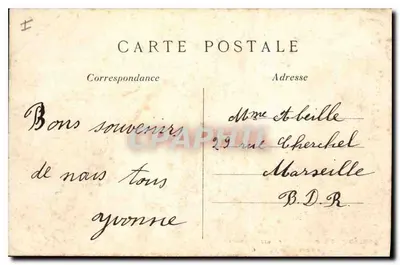 CARTE POSTALE
Correspondance
Adresse
Bons souvenirs
de nous tous
Yvonne
Mme Abeille
29 rue Cherchel
Marseille
B.D.R